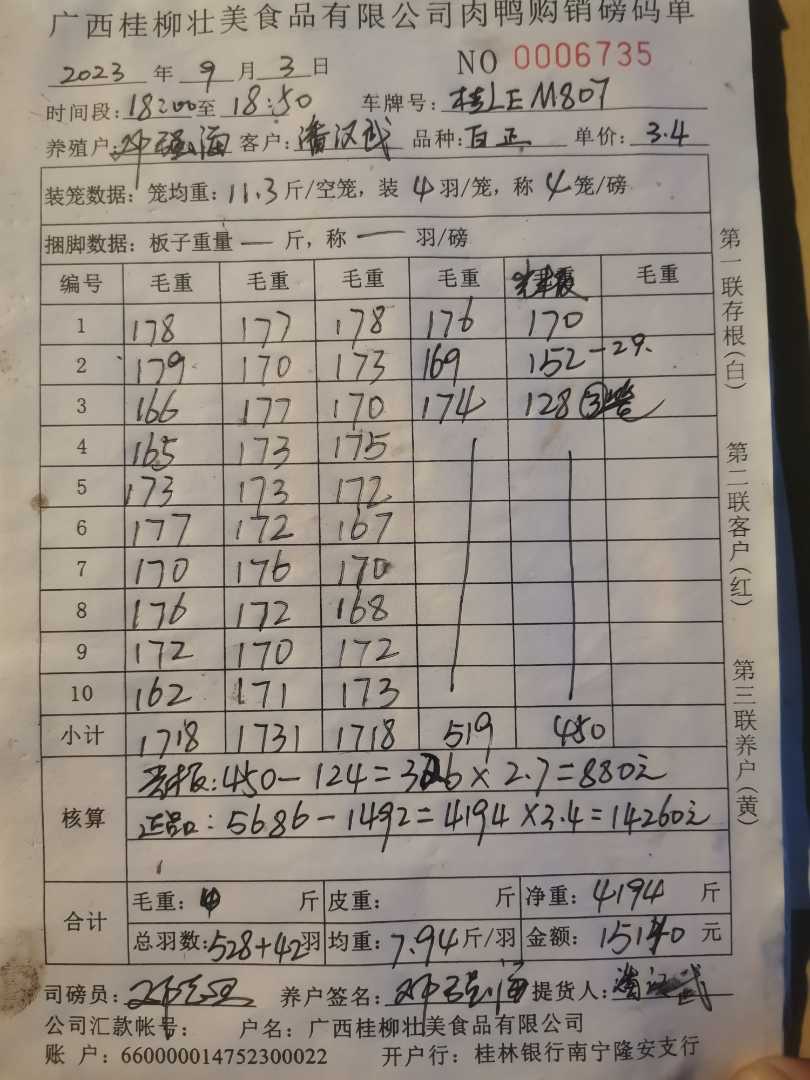 广西桂柳壮美食品有限公司肉鸭购销磅码单
2023 年 9 月 3 日 NO 0006735
时间段: 18:00 至 18:50 车牌号: 桂LEM807
养殖户: 邓强海 客户: 潘汉武 品种: 白正 单价: 3.4
装笼数据: 笼均重: 11.3 斤/空笼, 装 4 羽/笼, 称 4 笼/磅
捆脚数据: 板子重量 — 斤, 称 — 羽/磅
编号 毛重 毛重 毛重 毛重 毛重
1 178 177 178 176 170
2 179 170 173 169 152-29.
3 166 177 170 174 128 ③
4 165 173 175
5 173 173 172
6 177 172 167
7 170 176 170
8 176 172 168
9 172 170 172
10 162 171 173
小计 1718 1731 1718 519 450
核算
: 450-124=326×2.7=880元
正品: 5686-1492=4194×3.4=14260元
合计
毛重: 斤 皮重: 斤 净重: 4194 斤
总羽数: 528+42 羽 均重: 7.94 斤/羽 金额: 15140 元
司磅员: 养户签名: 邓强海 提货人: 潘汉武
公司汇款帐号: 户名: 广西桂柳壮美食品有限公司
账 户: 660000014752300022 开户行: 桂林银行南宁隆安支行
第一联存根(白) 第二联客户(红) 第三联养户(黄)